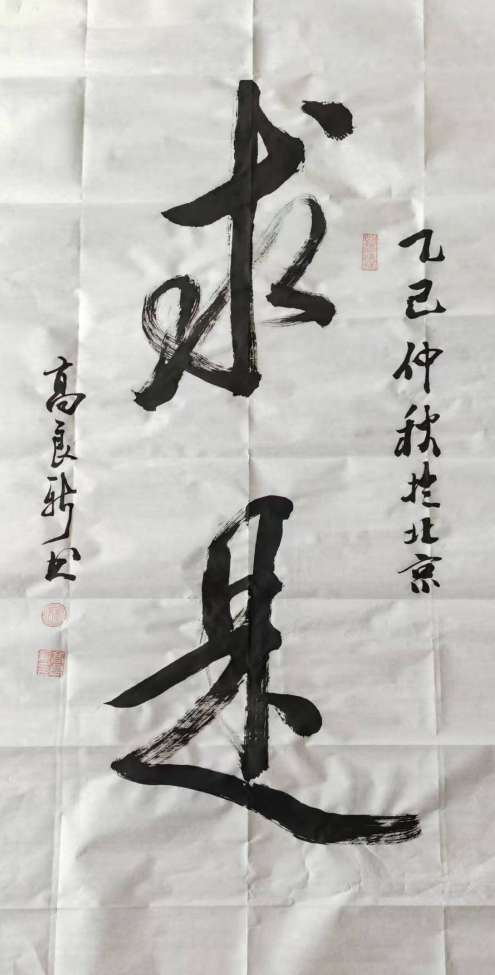 求是
乙巳仲秋于北京
高良新书